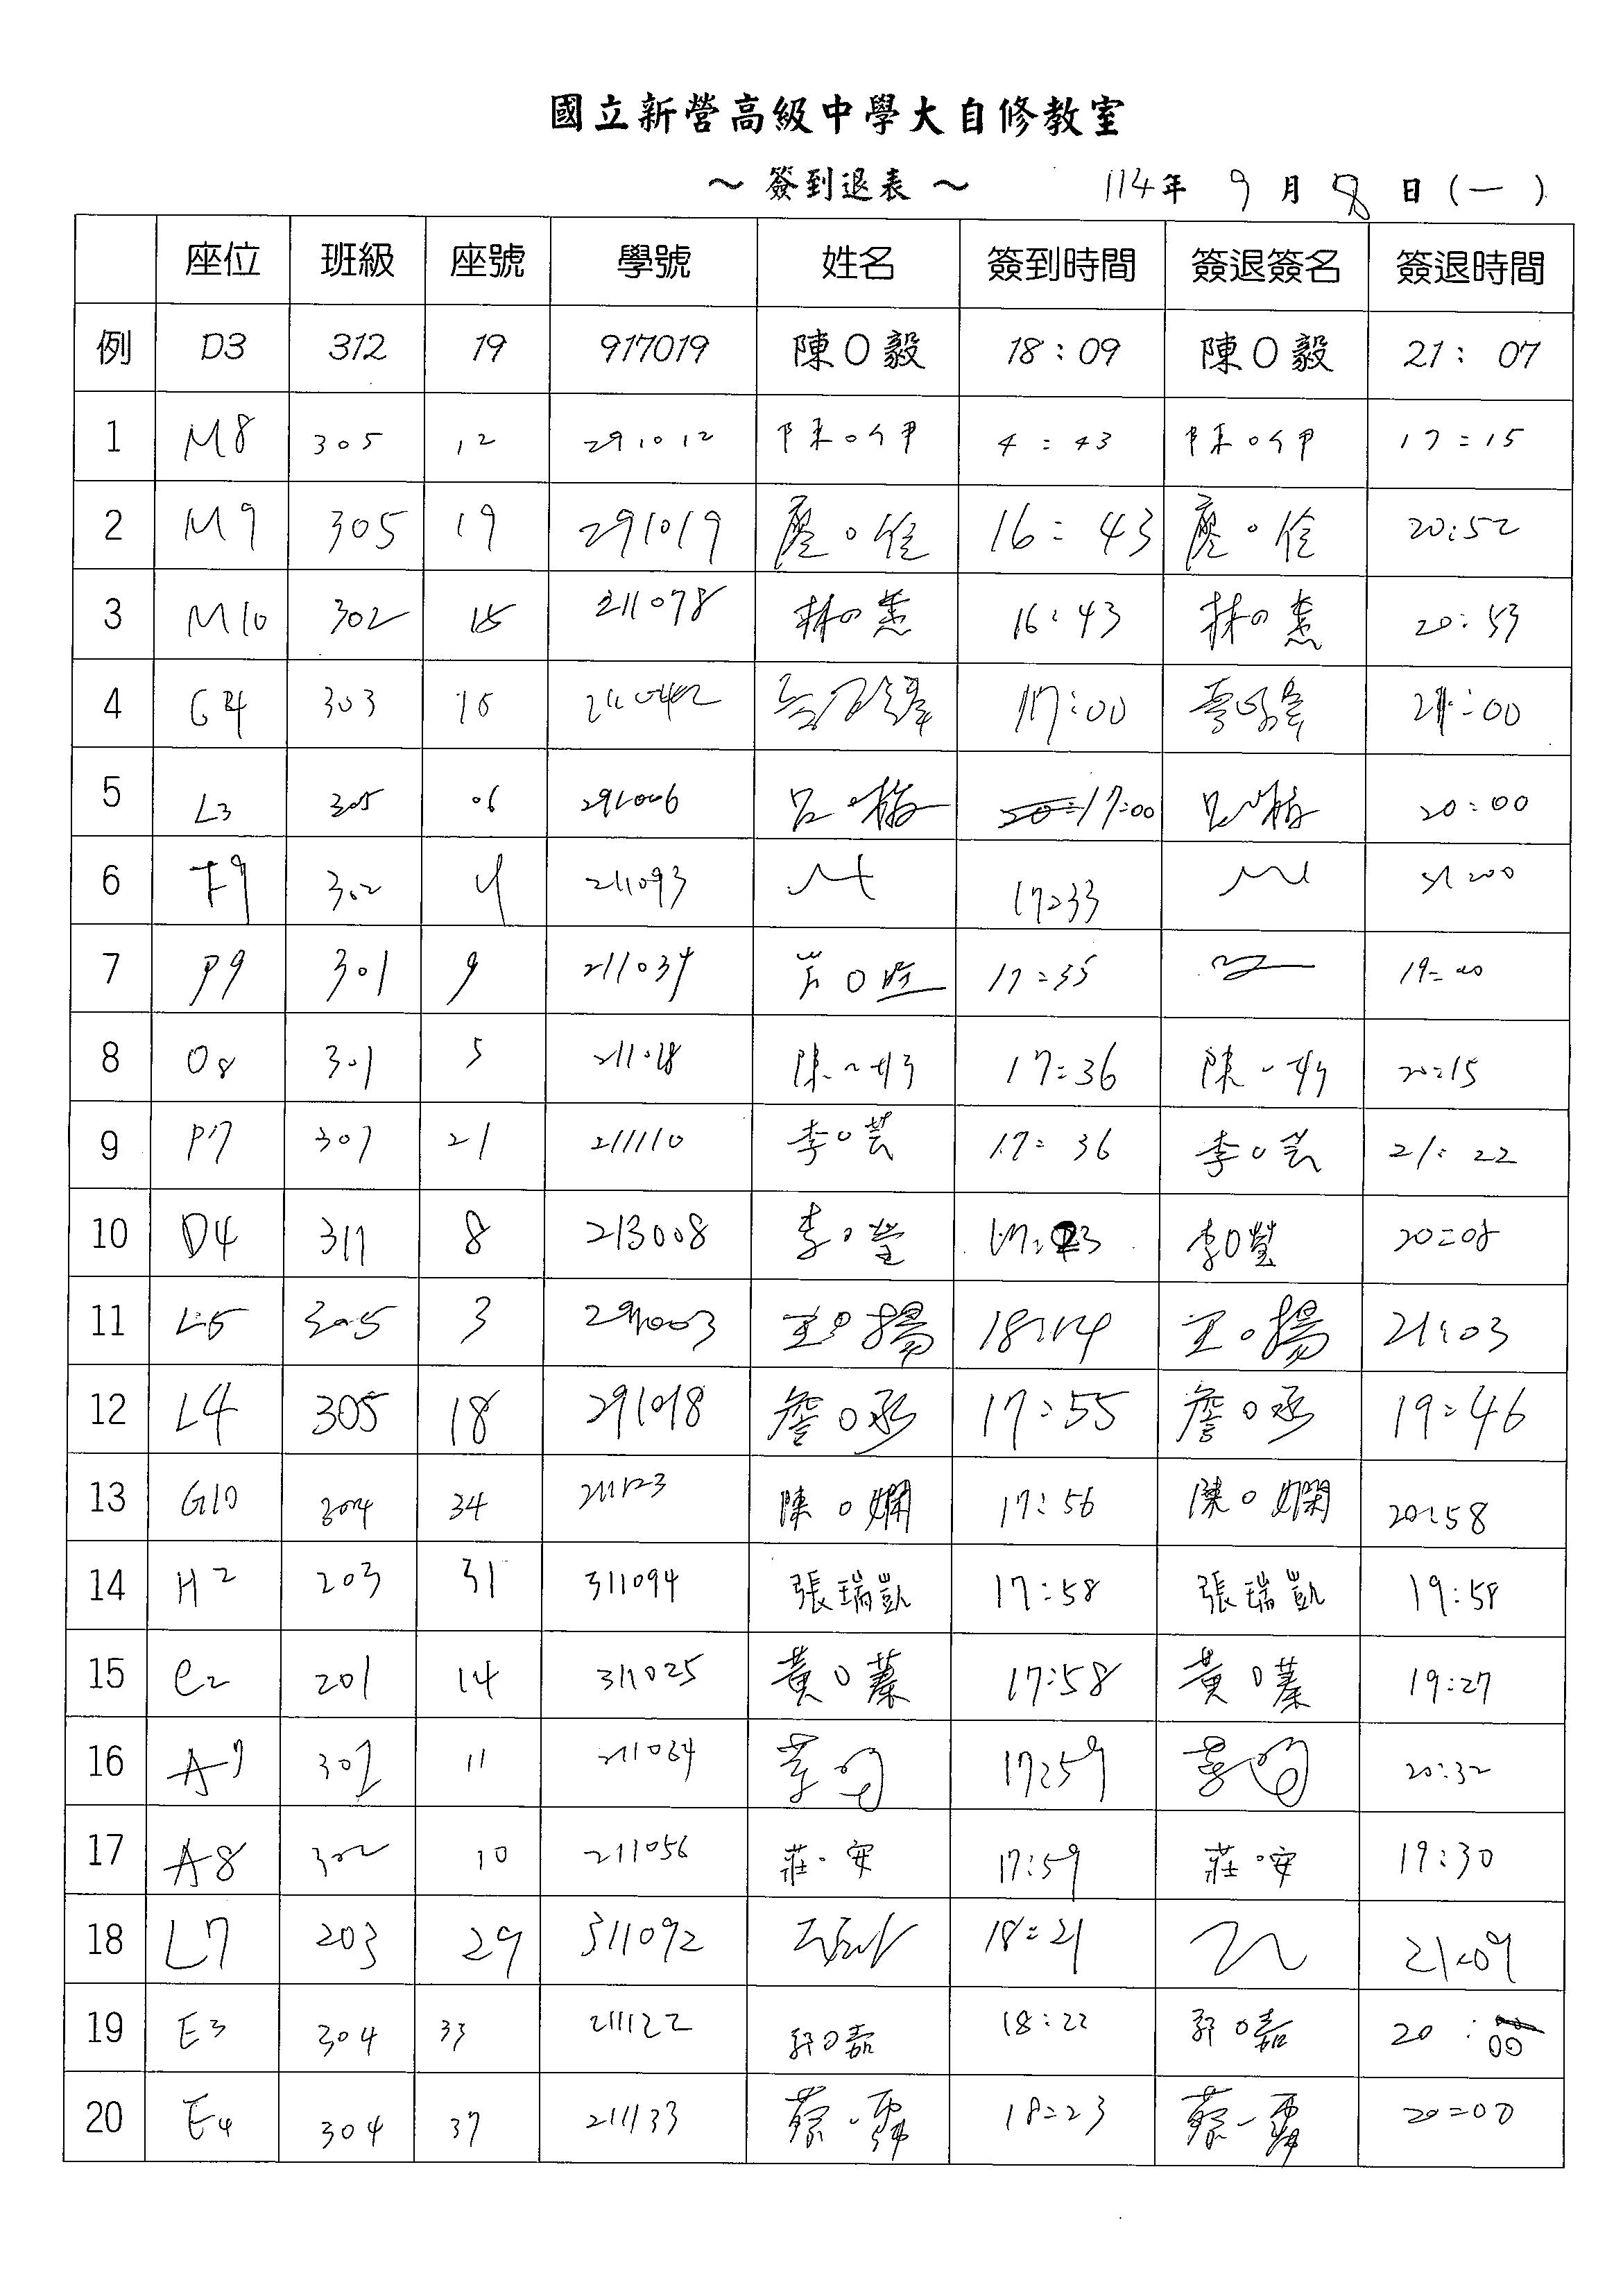 國立新營高級中學大自修教室
～ 簽到退表 ～ 114年 9月 8日(一)
座位 班級 座號 學號 姓名 簽到時間 簽退簽名 簽退時間
例 D3 312 19 917019 陳O毅 18:09 陳O毅 21:07
1 M8 305 12 291012 陳O伊 4:43 陳O伊 17:15
2 M9 305 19 291019 廖O佺 16:43 廖O佺 20:52
3 M10 302 15 211078 林O蕙 16:43 林O蕙 20:53
4 G4 303 16 17:00 21:00
5 L3 305 06 291006 呂O梅 17:00 呂O梅 20:00
6 F9 302 4 211093 17:33
7 P9 301 9 211034 17:35
8 O8 301 5 陳O妤 17:36 陳O妤 20:15
9 P7 307 21 211110 李O芸 17:36 李O芸 21:22
10 D4 311 8 213008 李O瑩 李O瑩 20:08
11 L5 305 3 291003 王O揚 18:14 王O揚 21:03
12 L4 305 18 291018 詹O丞 17:55 詹O丞 19:46
13 G10 304 34 211123 陳O嫻 17:56 陳O嫻 20:58
14 H2 203 31 311094 張瑞凱 17:58 張瑞凱 19:58
15 C2 201 14 311025 黃O蓁 17:58 黃O蓁 19:27
16 A7 302 11 211064 17:59 20:32
17 A8 302 10 211056 莊O安 17:59 莊O安 19:30
18 L7 203 29 311092 18:21 21:09
19 E3 304 33 211122 郭O嘉 18:22 郭O嘉 20:00
20 E4 304 37 211133 蔡O霈 18:23 蔡O霈 20:00